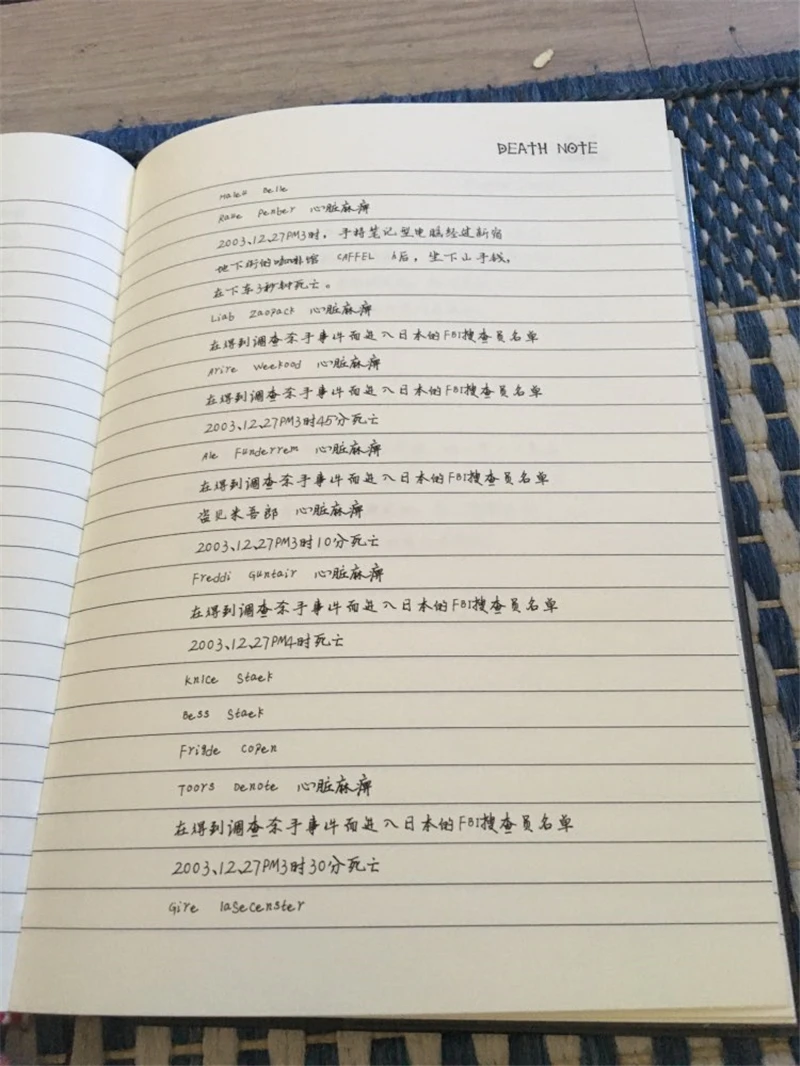 DEATH NOTE
Malek Belle
Raye Penber 心脏麻痹
2003、12、27PM3时，手持笔记型电脑经过新宿
地下街的咖啡馆 CAFFEL A后，坐下山手线。
在下车3秒钟死亡。
Liab Zaopack 心脏麻痹
在得到调查杀手事件而进入日本的FBI搜查员名单
Arire Weekood 心脏麻痹
在得到调查杀手事件而进入日本的FBI搜查员名单
2003、12、27PM3时45分死亡
Ale Funderrem 心脏麻痹
在得到调查杀手事件而进入日本的FBI搜查员名单
盗见朱吾郎 心脏麻痹
2003、12、27PM3时10分死亡
Freddi Guntair 心脏麻痹
在得到调查杀手事件而进入日本的FBI搜查员名单
2003、12、27PM4时死亡
Knice Staek
Bess Staek
Frigde Copen
Toors Denote 心脏麻痹
在得到调查杀手事件而进入日本的FBI搜查员名单
2003、12、27PM3时30分死亡
Gire lasecenster